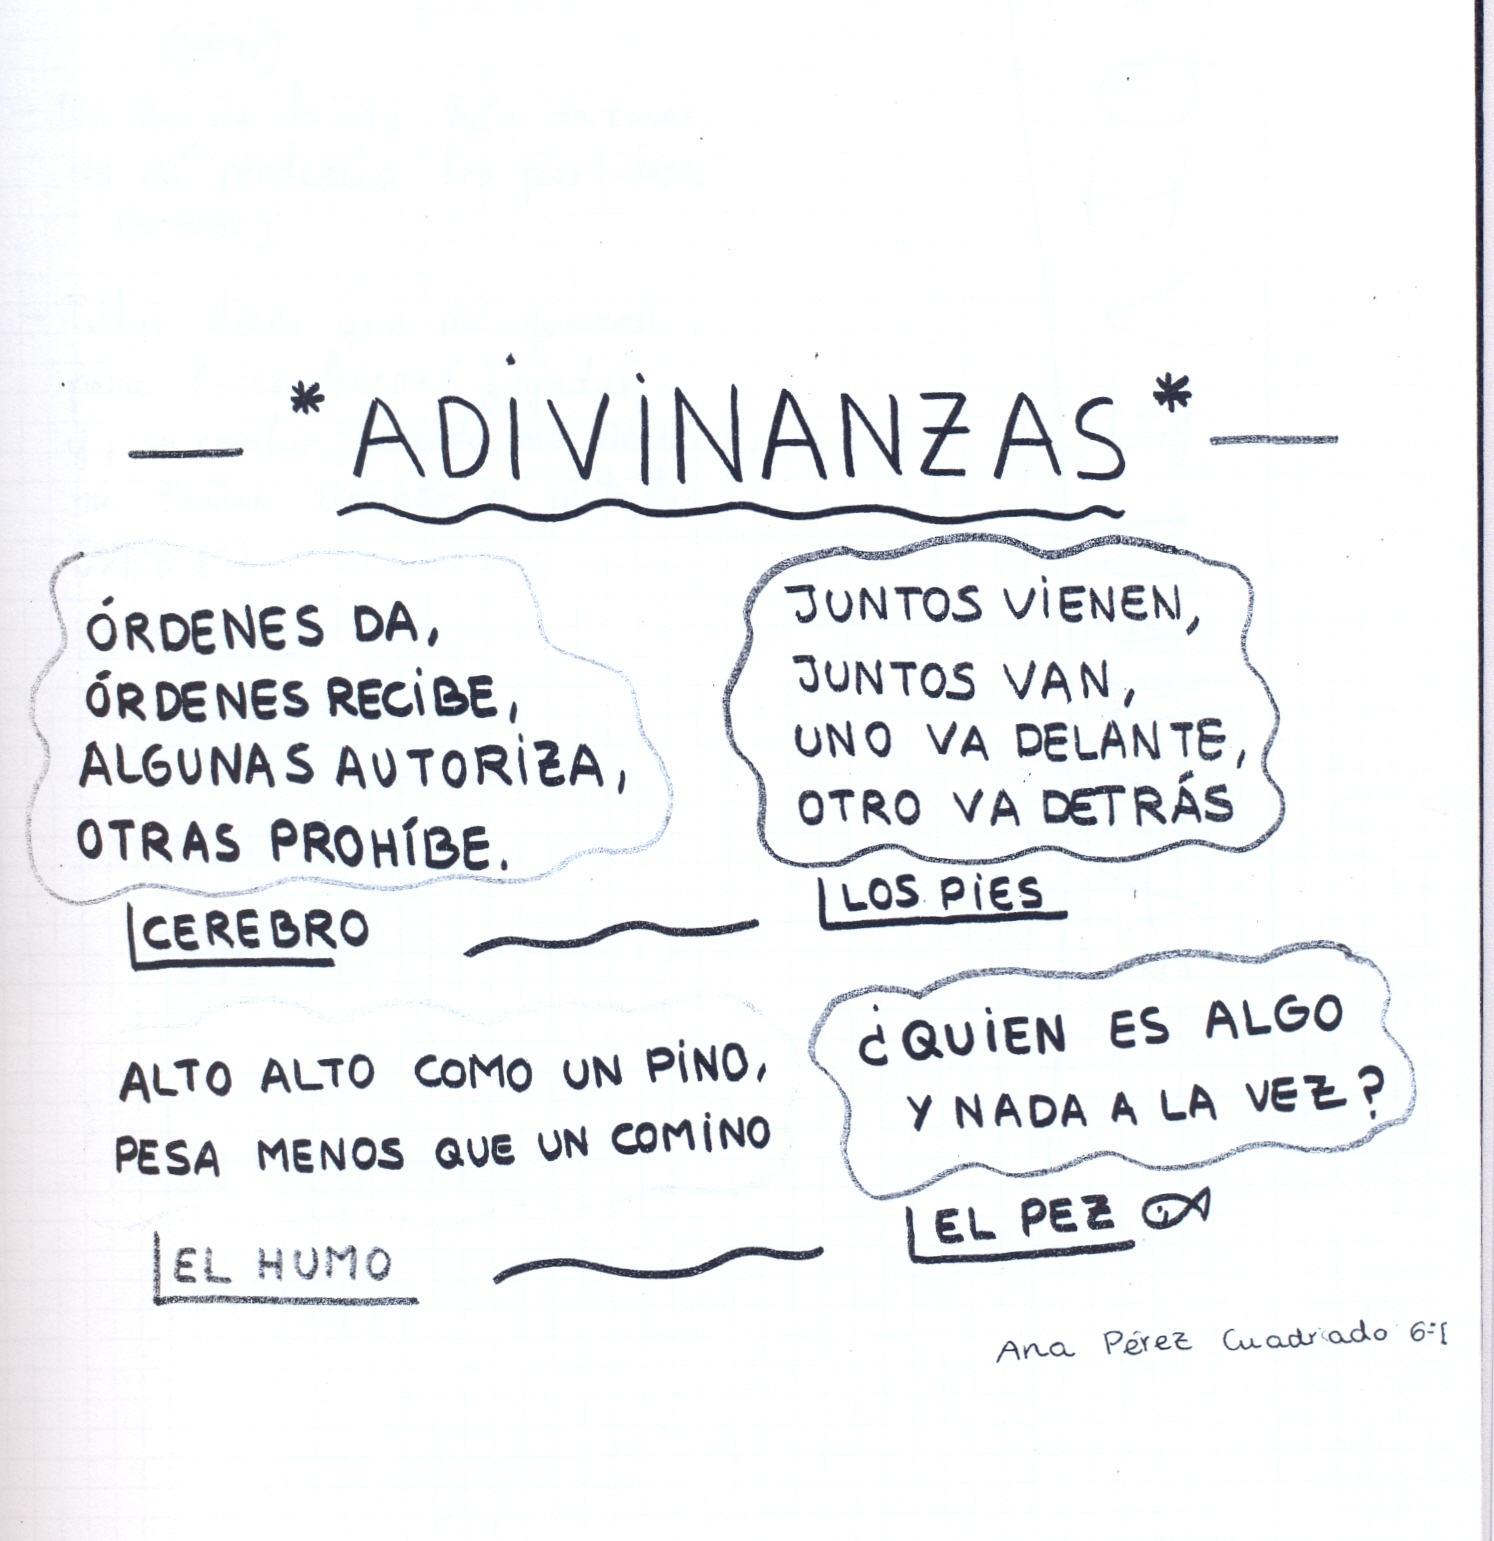 * ADIVINANZAS *
ÓRDENES DA,
ÓRDENES RECIBE,
ALGUNAS AUTORIZA,
OTRAS PROHÍBE.
CEREBRO
JUNTOS VIENEN,
JUNTOS VAN,
UNO VA DELANTE,
OTRO VA DETRÁS
LOS PIES
ALTO ALTO COMO UN PINO,
PESA MENOS QUE UN COMINO
EL HUMO
¿QUIEN ES ALGO
Y NADA A LA VEZ?
EL PEZ
Ana Pérez Cuadrado